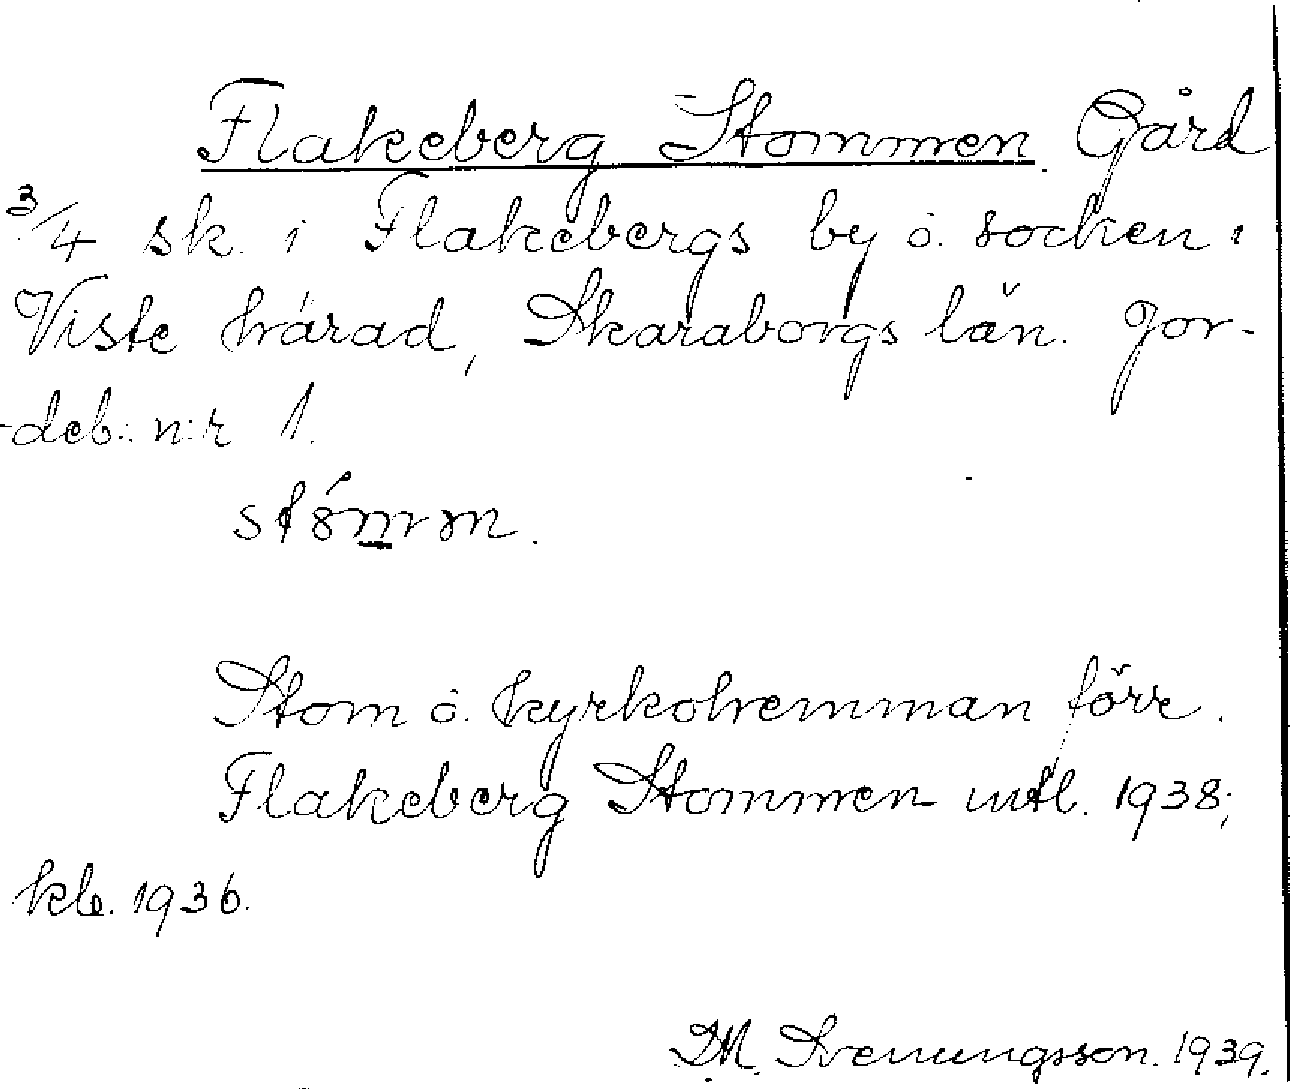 Flakeberg Stommen Gård
3/4 sk. i Flakebergs by o. socken i
Viste härad, Skaraborgs län. Jor-
-deb. n:r 1.
Stom o. kyrkohemman förr.
Flakeberg Stommen mtl. 1938;
kb. 1936.
D.M. Svenungsson. 1939.